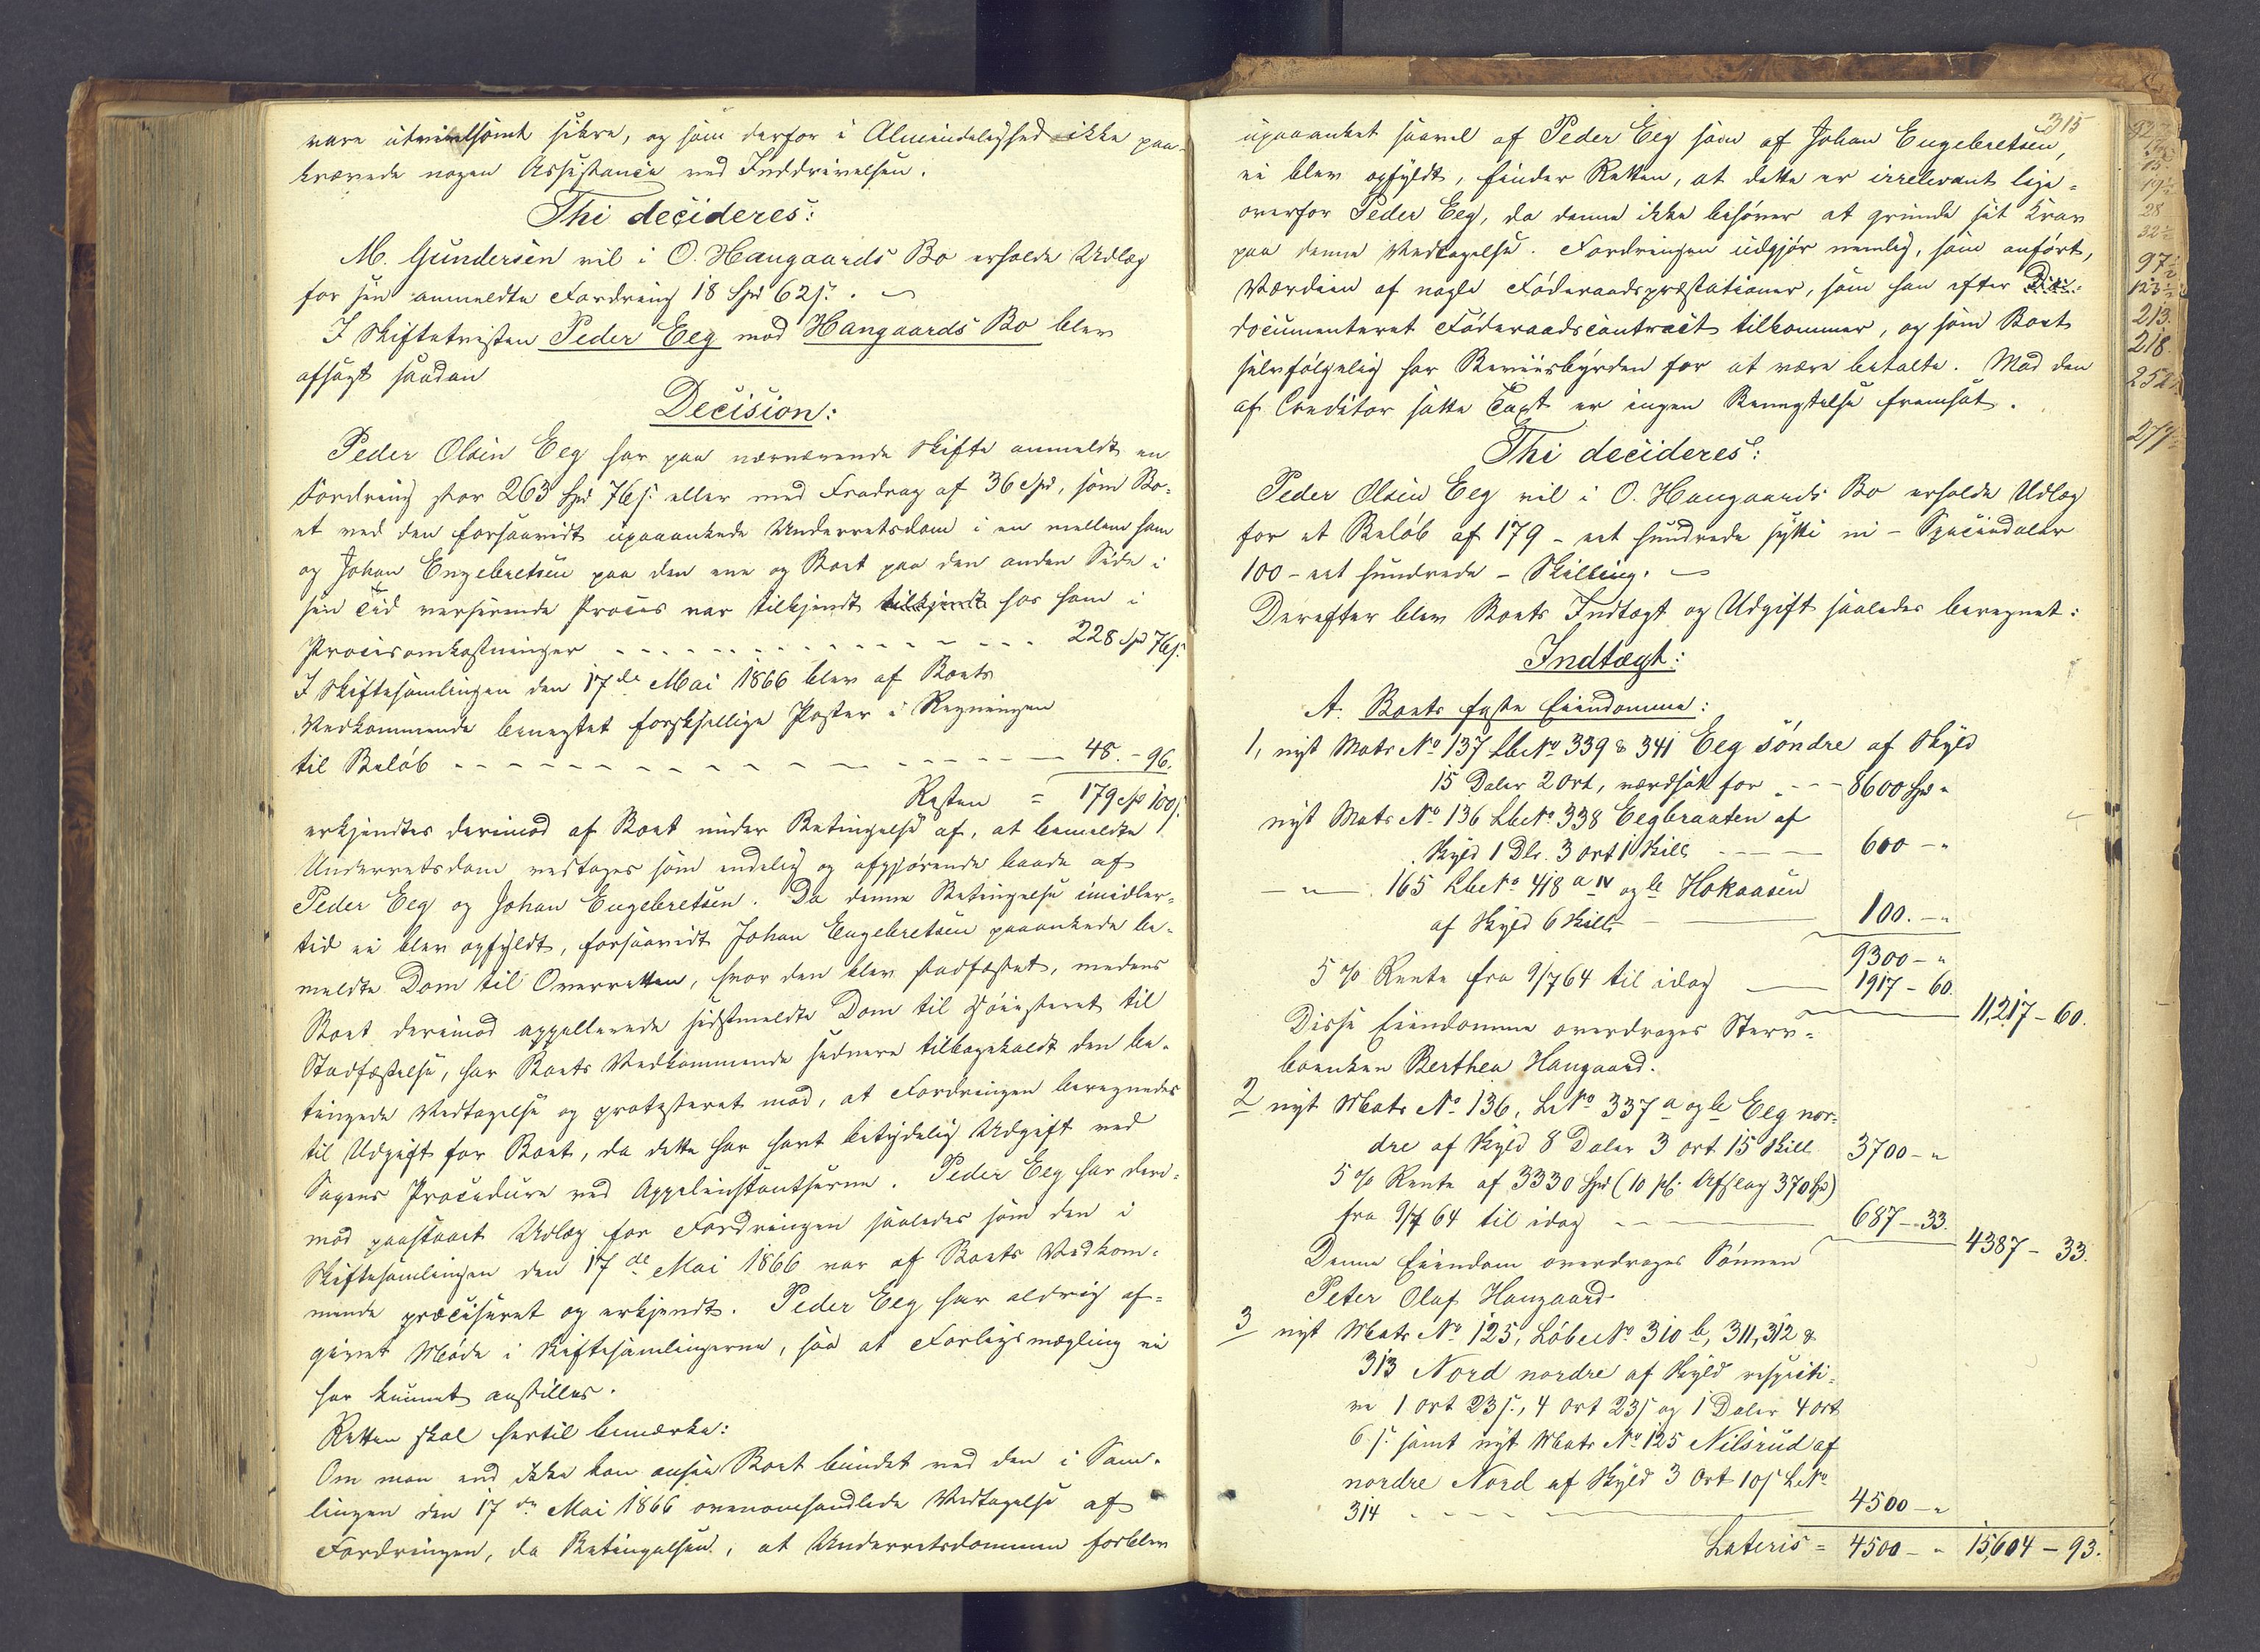 være utvivelsomt sikre, og som derfor i Almindelighed ikke paa-
krævede nogen Assistance ved Inddrivelsen.
Thi decideres:
M. Gundersen vil i O. Haugaards Bo erholde Udlæg
for sin anmeldte Fordring 18 Spd 62 s.
I Skiftetvisten Peder Eeg mod Haugaards Bo blev
afsagt saadan
Decision:
Peder Olsen Eeg har paa nærværende Skifte anmeldt en
Fordring stor 263 Spd 76 s. eller med Fradrag af 36 Spd, som Bo-
et ved den forsaavidt upaaankede Underretsdom i en mellem ham
og Johan Engebretsen paa den ene og Boet paa den anden Side i
sin Tid verserende Proces var tilkjendt tilkjendt hos ham i
Procesomkostninger 228 Spd 76 s.
I Skiftesamlingen den 17de Mai 1866 blev af Boets
Vedkommende benegtet forskjellige Poster i Regningen
til Beløb 48. - 96.
Resten = 179 Spd 100 s.
erkjendtes derimod af Boet under Betingelse af, at bemeldte
Underretsdom vedtages som endelig og afgjørende baade af
Peder Eeg og Johan Engebretsen. Da denne Betingelse imidler-
tid ei blev opfyldt, forsaavidt Johan Engebretsen paaankede be-
meldte Dom til Overretten, hvor den blev stadfæstet, medens
Boet derimod appellerede sidstmeldte Dom til Høiesteret til
Stadfæstelse, har Boets Vedkommende senere tilbagekaldt den be-
tingede Vedtagelse og protesteret mod, at Fordringen beregnedes
til Udgift for Boet, da dette har havt betydelig Udgift ved
Sagens Procedure ved Appelinstantserne. Peder Eeg har deri-
mod paastaaet Udlæg for Fordringen saaledes som den i
Skiftesamlingen den 17de Mai 1866 var af Boets Vedkom-
mende præciseret og erkjendt. Peder Eeg har aldrig af-
givet Møde i Skiftesamlingerne, saa at Forligsmægling ei
har kunnet anstilles.
Retten skal hertil bemærke:
Om man end ikke kan ansee Boet bundet ved den i Sam-
lingen den 17de Mai 1866 ovenomhandlede Vedtagelse af
Fordringen, da Betingelsen, at Underretsdommen forblev
315
upaaanket saavel af Peder Eeg som af Johan Engebretsen,
ei blev opfyldt, finder Retten, at dette er irrelevant lige-
overfor Peder Eeg, da denne ikke behøver at grunde sit Krav
paa denne Vedtagelse. Fordringen udgjør nemlig, som anført,
Værdien af nogle Føderaadspræstationer, som han efter
documenteret Føderaadscontract tilkommer, og som Boet
selvfølgelig har Beviisbyrden for at være betalte. Mod den
af Creditor satte Taxt er ingen Benegtelse fremsat.
Thi decideres:
Peder Olsen Eeg vil i O. Haugaards Bo erholde Udlæg
for et Beløb af 179 - eet hundrede sytti ni - Speciedaler
100 - eet hundrede - Skilling.
Derefter blev Boets Indtægt og Udgift saaledes beregnet:
Indtægt:
A. Boets faste Eiendomme:
1, nyt Matr No 137 Lbe No 339 & 341 Eeg søndre af Skyld
15 Daler 2 Ort, værdsat for 8600 Spd "
nyt Matr No 136 Lbe No 338 Eegbraaten af
Skyld 1 Dlr. 3 Ort 1 Skill 600 - "
- " - 165 Lbe No 418 a IV og b Hokaasen
af Skyld 6 Skill 100. - "
9300 - "
5 % Rente fra 9/7 64 til idag 1917 - 60.
11,217 - 60.
Disse Eiendomme overdrages Sterv-
boenken Berthea Haugaard.
2 nyt Matr No 136, L No 337 a og b Eeg nor-
dre af Skyld 8 Daler 3 Ort 15 Skill 3700 - "
5 % Rente af 3330 Spd (10 pCt. Afslag 370 Spd)
fra 9/7 64 til idag 687 - 33.
4387 - 33.
Denne Eiendom overdrages Sønnen
Peter Olaf Haugaard.
3 nyt Matr No 125, Løbe No 310 b, 311, 312 &
313 Nord nordre af Skyld respecti-
ve 1 Ort 23 s., 4 Ort 23 s og 1 Daler 4 Ort
6 s. samt nyt Matr No 125 Nilsrud af
nordre Nord af Skyld 3 Ort 10 s L No
314 4500 - "
Lateris = 4500 - " 15,604 - 93.